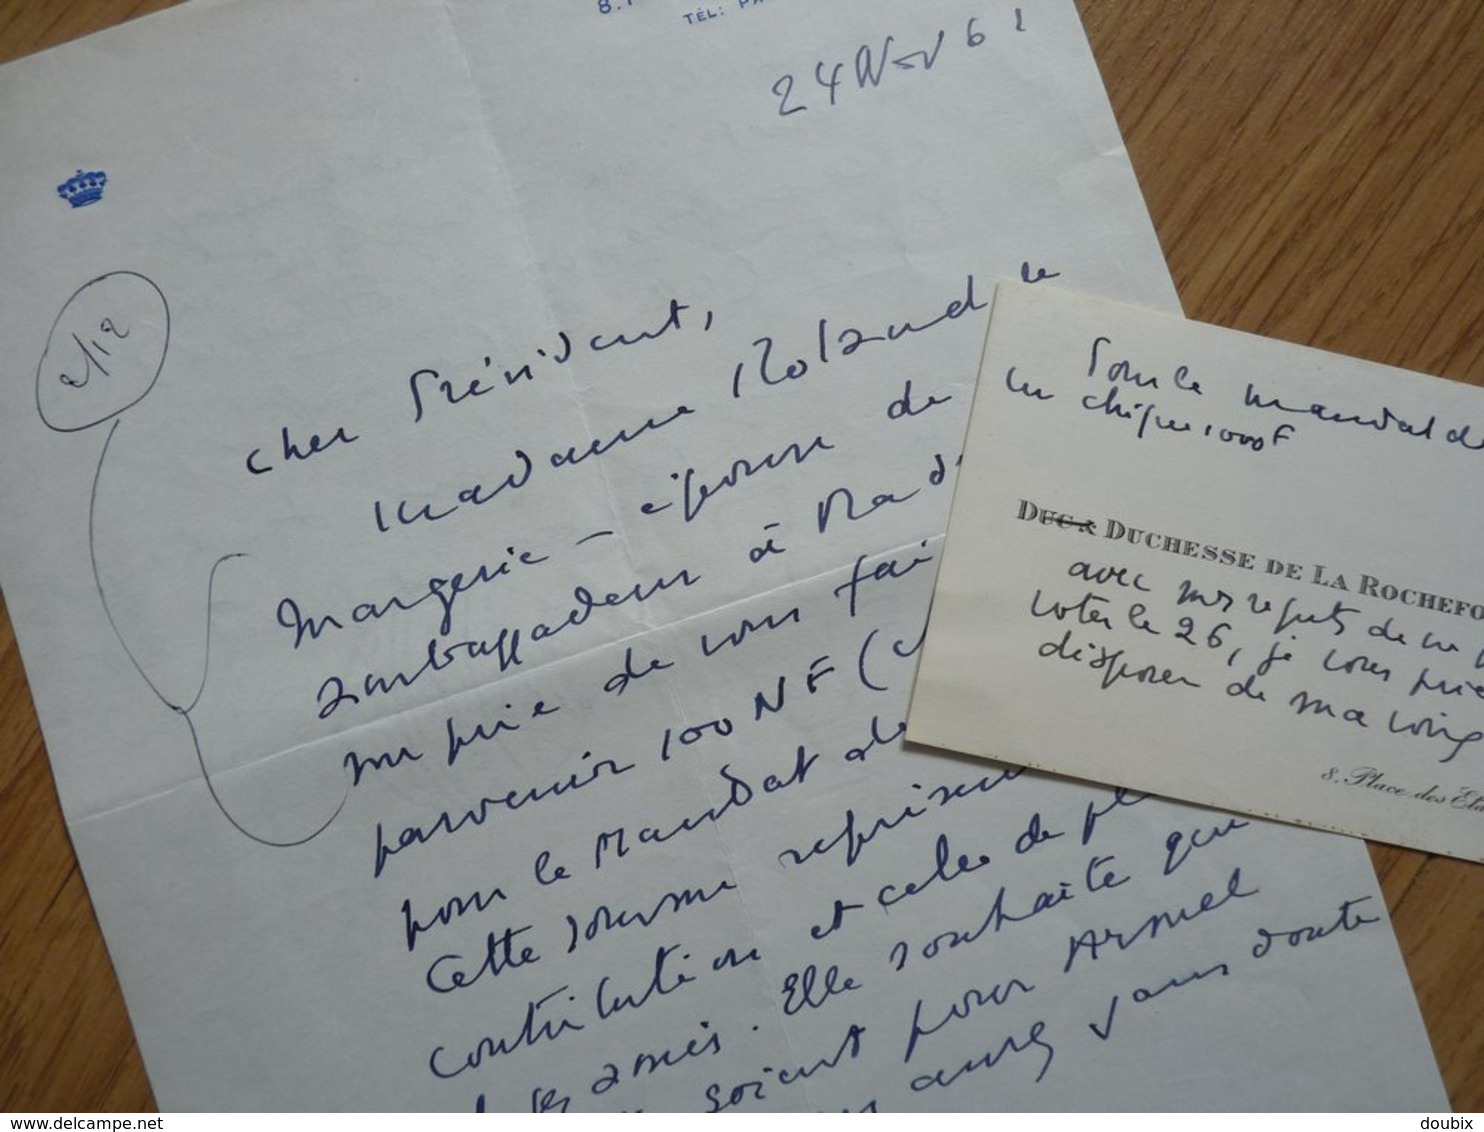 8.
TÉL: PA
24 Nov 61
2/12
Cher Président,
Madame Roland de
Margerie – épouse de
Ambassadeur à Mad
me prie de vous fai
parvenir 100 NF (
pour le Mandat de
Cette somme représen
contribution et celles de pl
amis. Elle souhaite que
soient pour Armel
aurez sans doute
Pour le mandat de
un chèque 1000F
DUC & DUCHESSE DE LA ROCHEFO
avec mes regrets de ne
voter le 26, je vous prie
disposer de ma voix
8. Place des Eta
www.delcampe.net
doubix